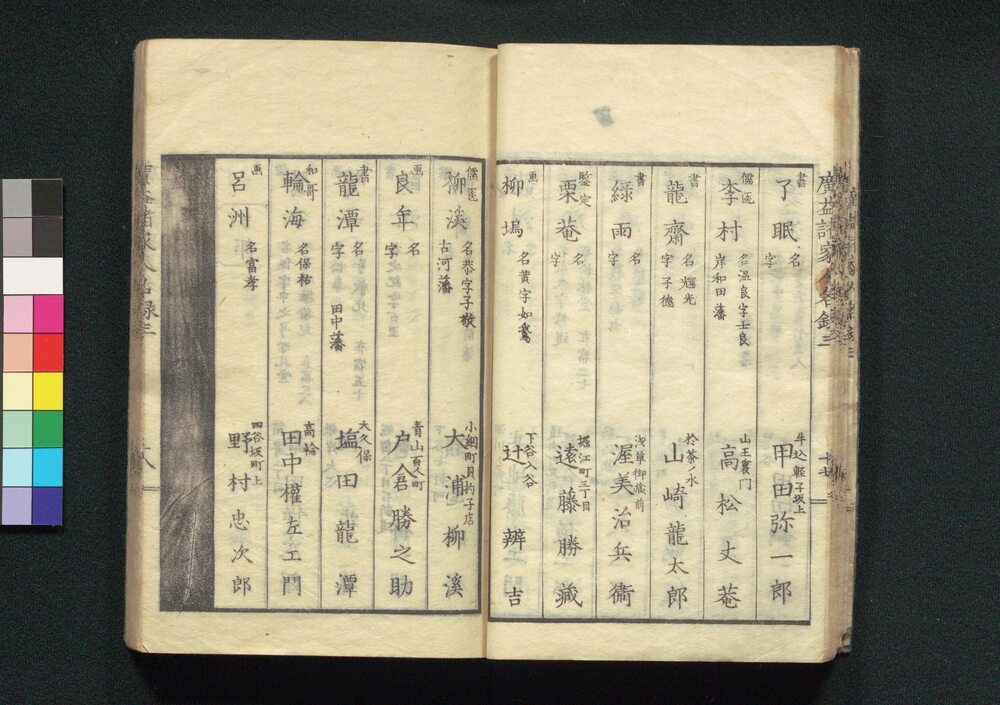 書 了眠 名 字 牛込軽子坂上 甲田弥一郎
儒医 李村 名温良字士良 岸和田藩 山王裏門 高松丈菴
書 龍齋 名 字子徳 於茶ノ水 山崎龍太郎
書 緑雨 名 字 浅草御蔵前 渥美治兵衞
鑒定 栗菴 名 字 堀江町三丁目 遠藤勝藏
画 柳塢 名黄字如鵞 下谷入谷 辻辨吉
儒医 柳溪 名恭字子敬 古河藩 小網町貝杓子店 大浦柳溪
画 良年 名 字 青山百人町 户倉勝之助
書 龍潭 名 字 田中藩 大久保 塩田龍潭
和哥 輪海 名保祐 高輪 田中權左エ門
画 呂洲 名富孝 四谷坂町上 野村忠次郎